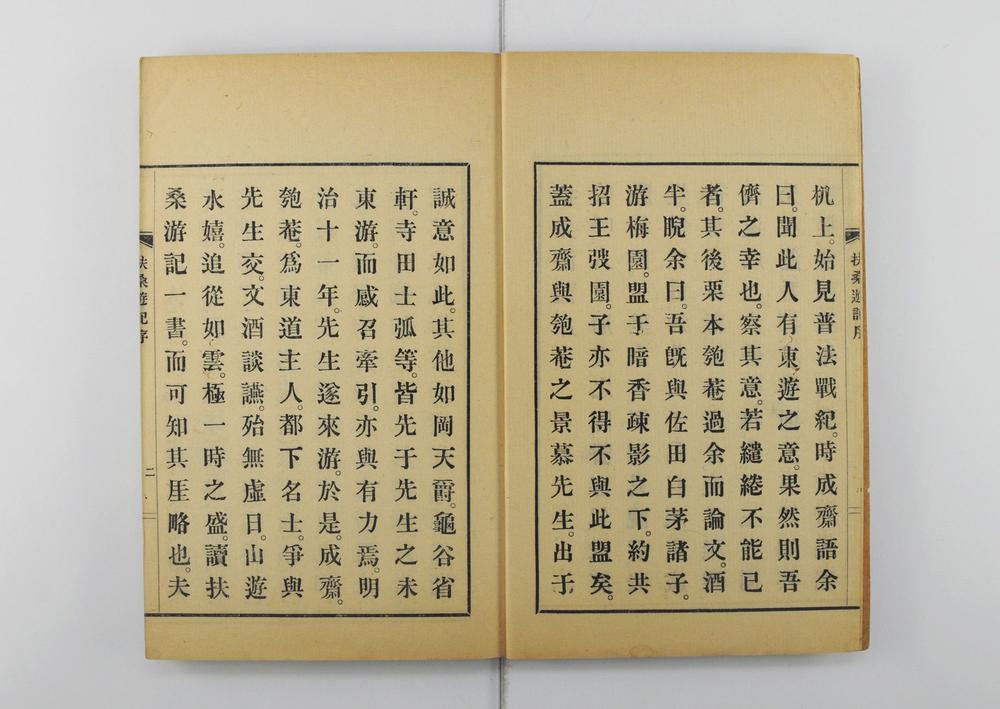 机上。始見普法戰紀。時成齋語余
曰。聞此人有東遊之意。果然則吾
儕之幸也。察其意。若繾綣不能已
者。其後栗本匏菴過余而論文。酒
半。睨余曰。吾既與佐田白茅諸子。
游梅園。盟于暗香疎影之下。約共
招王弢園。子亦不得不與此盟矣。
蓋成齋與匏菴之景慕先生。出于
扶桑遊記序
誠意如此。其他如岡天爵。龜谷省
軒。寺田士弧等。皆先于先生之未
東游。而感召牽引。亦與有力焉。明
治十一年。先生遂來游。於是。成齋。
匏菴。爲東道主人。都下名士。爭與
先生交。文酒談讌。殆無虛日。山遊
水嬉。追從如雲。極一時之盛。讀扶
桑游記一書。而可知其厓略也。夫
扶桑遊記序
二